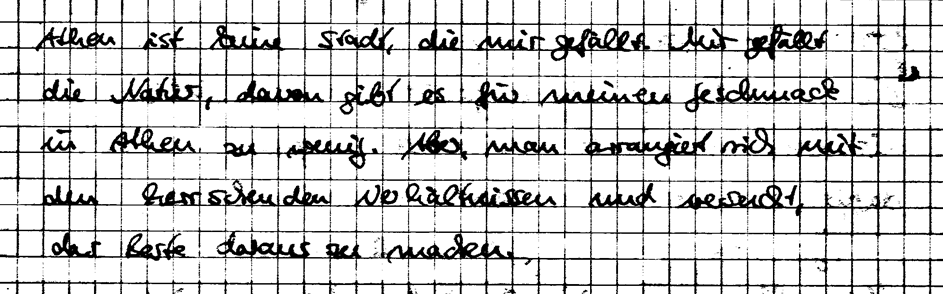 Athen ist keine Stadt, die mir gefällt. Mir gefällt
die Natur, davon gibt es für meinen Geschmack
in Athen zu wenig. Aber, man arrangiert sich mit
den herrschenden Verhältnissen und versucht,
das Beste daraus zu machen.